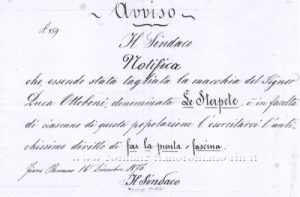 Avviso
N. 459
Il Sindaco
Notifica
che, essendo stata tagliata la macchia del Signor
Duca Ottoboni, denominata Le Sterpete, è in facoltà
di ciascuno di questa popolazione l'esercitarvi l'anti-
chissimo diritto di far la punta e fascina.
Fiano Romano 16 Dicembre
Il Sindaco